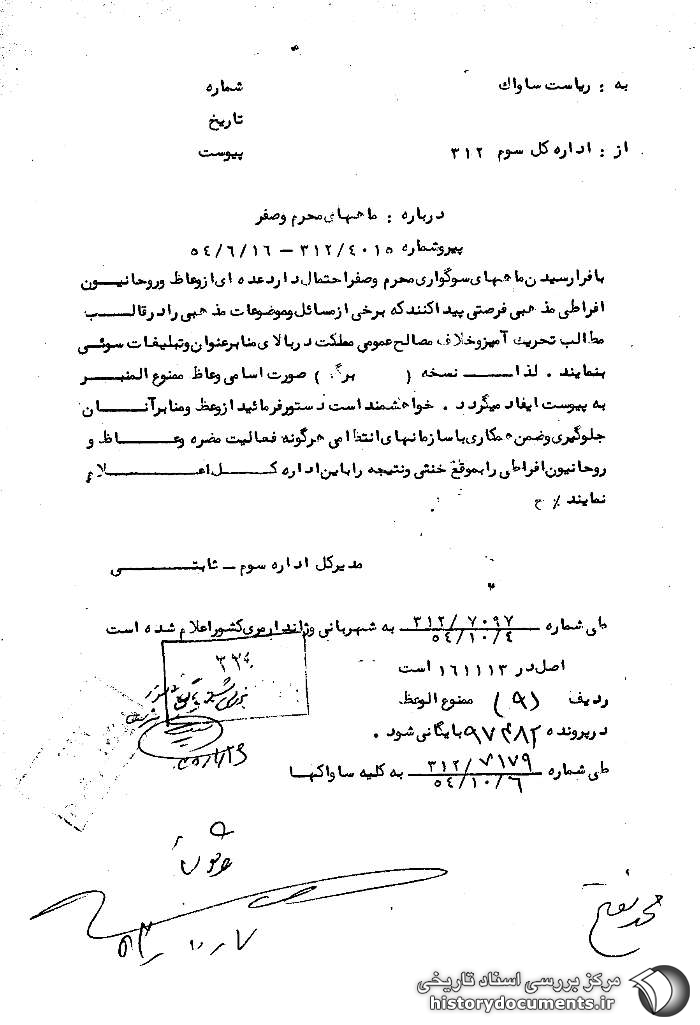 به : ریاست ساواك
شماره
تاریخ
از : اداره کل سوم ۳۱۲
پیوست
درباره : ماههای محرم وصفر
پیروشماره ۳۱۲/۴۰۱۵ – ۵۴/۶/۱۶
بافرارسیدن ماههای سوگواری محرم وصفراحتمال دارد عده ای ازوعاظ وروحانیون
افراطی مذهبی فرصتی پیداکنند که برخی ازمسائل وموضوعات مذهبی رادرقالب
مطالب تحریک آمیزوخلاف مصالح عمومی مملکت دربالای منابرعنوان وتبلیغات سوئی
بنمایند . لذا نسخه ( برگ ) صورت اسامی وعاظ ممنوع المنبر
به پیوست ایفاد میگردد . خواهشمند است دستورفرمائید ازوعظ ومنابرآنان
جلوگیری وضمن همکاری باسازمانهای انتظامی هرگونه فعالیت مضره وعاظ و
روحانیون افراطی رابموقع خنثی ونتیجه راباین اداره کل اعلام
نمایند ٪ ح
مدیرکل اداره سوم – ثابتی
طی شماره ۳۱۲/۷۰۹۷ ۵۴/۱۰/۴ به شهربانی وژاندارمری کشوراعلام شده است
اصل در ۱۶۱۱۱۳ است
ردیف (۹) ممنوع الوعظ
درپرونده ۹۷۴۸۲ بایگانی شود .
طی شماره ۳۱۲/۷۱۷۹ ۵۴/۱۰/۶ به کلیه ساواکها
۳۳۴
محمد مفتح
مرکز بررسی اسناد تاریخی
historydocuments.ir